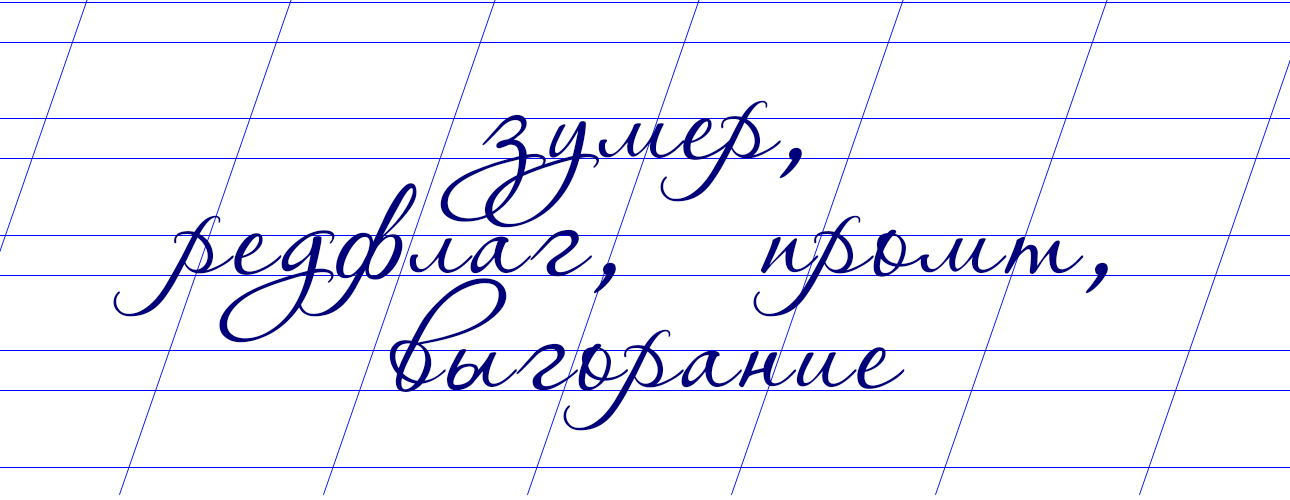 зумер,
редфлаг, промт,
выгорание